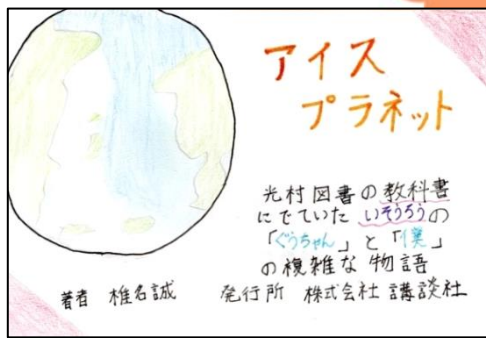 アイス
プラネット
光村図書の教科書
にでていた いそうろうの
「ぐうちゃん」と「僕」
の複雑な物語
著者 椎名誠 発行所 株式会社 講談社